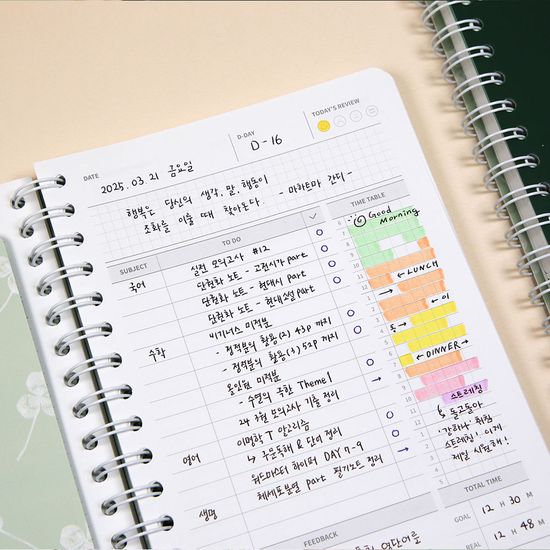 DATE
2025. 03. 21 금요일
D-DAY
D-16
TODAY'S REVIEW
행복은 당신의 생각, 말, 행동이
조화를 이룰 때 찾아온다. - 마하트마 간디 -
SUBJECT
TO DO
TIME TABLE
국어
실전 모의고사 #12
단권화 노트 - 고전시가 part
단권화 노트 - 현대시 part
단권화 노트 - 현대소설 part
수학
비기너스 미적분
- 적분의 활용(2) 43p 까지
- 적분의 활용(3) 52p 까지
올인원 미적분
- 수열의 극한 Theme 1
24 3월 모의고사 기출 정리
영어
이명학 T 알고리즘
↳ 구문독해 & 단어 정리
워드마스터 하이퍼 DAY 7-9
생명
체세포분열 part 필기노트 정리
Good
Morning
← LUNCH
→
← 이
동 →
← DINNER →
스트레칭
↳ 돌고돌아
스트레칭! 이게
제일 시원해!
FEEDBACK
TOTAL TIME
GOAL
12 H 30 M
REAL
12 H 48 M